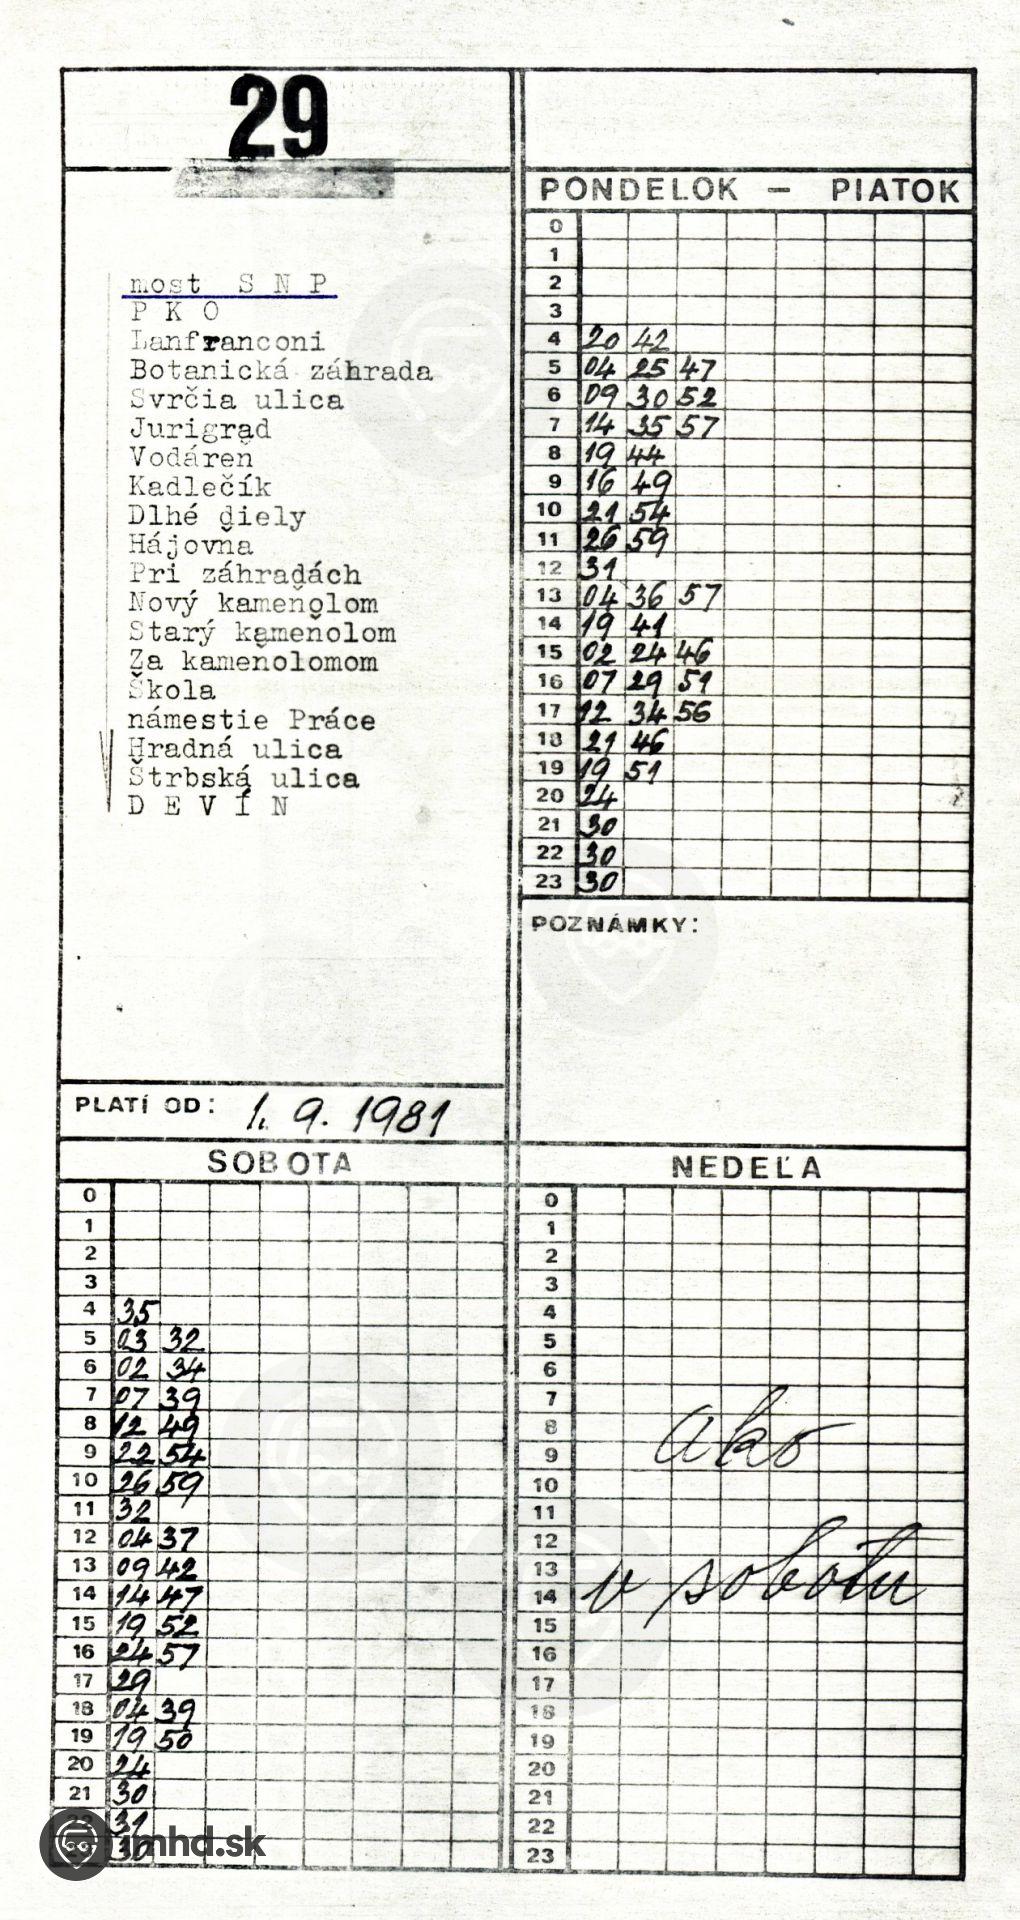 29
most S N P
P K O
Lanfranconi
Botanická záhrada
Svrčia ulica
Jurigrad
Vodáreň
Kadlečík
Dlhé diely
Hájovňa
Pri záhradách
Nový kameňolom
Starý kameňolom
Za kameňolomom
Škola
námestie Práce
Hradná ulica
Štrbská ulica
D E V Í N
PLATÍ OD: 1. 9. 1981
PONDELOK - PIATOK
0
1
2
3
4 20 42
5 04 25 47
6 09 30 52
7 14 35 57
8 19 44
9 16 49
10 21 54
11 26 59
12 31
13 04 36 57
14 19 41
15 02 24 46
16 07 29 51
17 12 34 56
18 21 46
19 19 51
20 24
21 30
22 30
23 30
POZNÁMKY:
SOBOTA
0
1
2
3
4 35
5 03 32
6 02 34
7 07 39
8 12 49
9 22 54
10 26 59
11 32
12 04 37
13 09 42
14 14 47
15 19 52
16 24 57
17 29
18 04 39
19 19 50
20 24
21 30
22 31
23 30
NEDEĽA
0
1
2
3
4
5
6
7
8
9
10
11
12
13
14
15
16
17
18
19
20
21
22
23
ako
v sobotu
imhd.sk